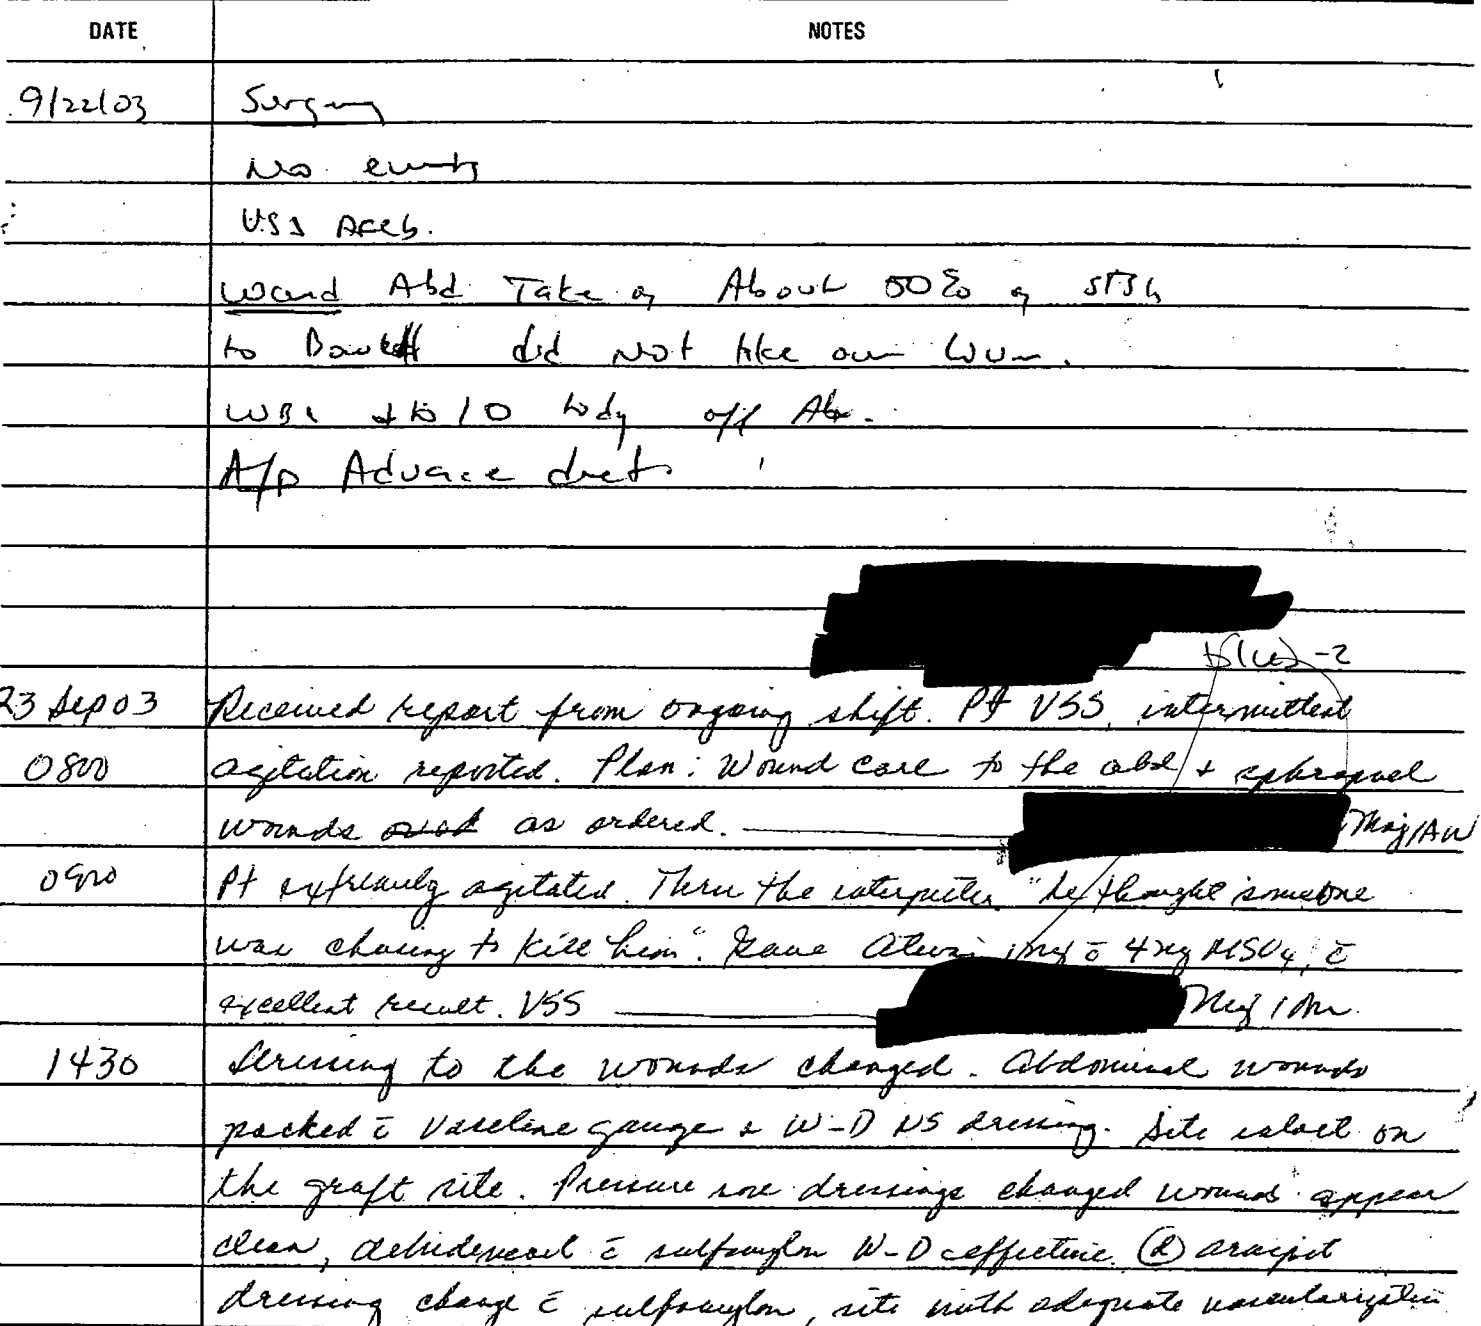 DATE NOTES
9/22/03 Surgery
No events
VSS Afeb.
Wound Abd Take of About 50% of STSG
to Bowel did not take over
WBC ↓ to 10 today off Abx.
A/P Advance diet
b(6)-2
23 Sep 03 Received report from ongoing shift. Pt VSS, intermittent
0800 agitation reported. Plan: Wound care to the abd +
wounds as ordered. Maj/AN
0900 Pt extremely agitated. Thru the interpreter "he thought someone
was chasing to kill him". Gave Ativan 1mg c̄ 4mg MSO4, c̄
excellent result. VSS Maj/AN
1430 Dressing to the wounds changed. Abdominal wounds
packed c̄ vaseline gauze + W-D NS dressing. Site intact on
the graft site. Pressure sore dressings changed wounds appear
clean, debridement c̄ sulfamylon W-D effective.
dressing change c̄ sulfamylon, site with adequate vascularization